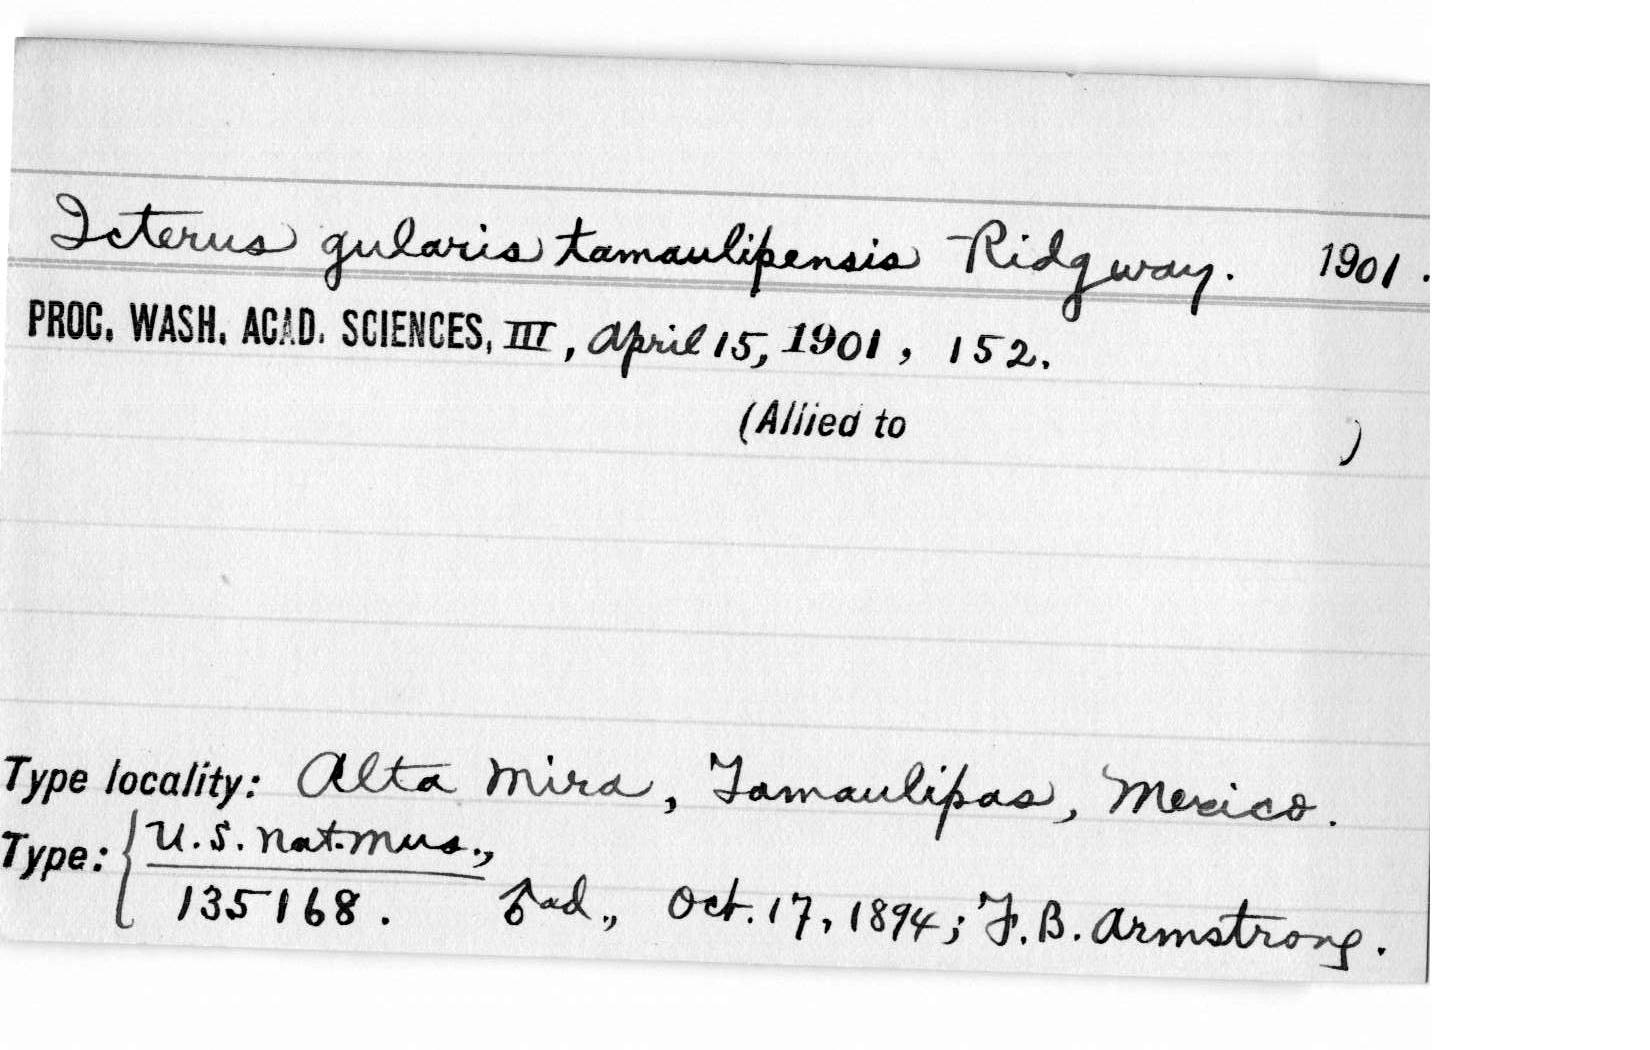 Icterus gularis tamaulipensis Ridgway. 1901.
PROC. WASH. ACAD. SCIENCES, III, April 15, 1901, 152.
(Allied to )
Type locality: Alta Mira, Tamaulipas, Mexico.
Type: { U.S. Nat. Mus.,
135168. ♂ ad., Oct. 17, 1894; F. B. Armstrong.